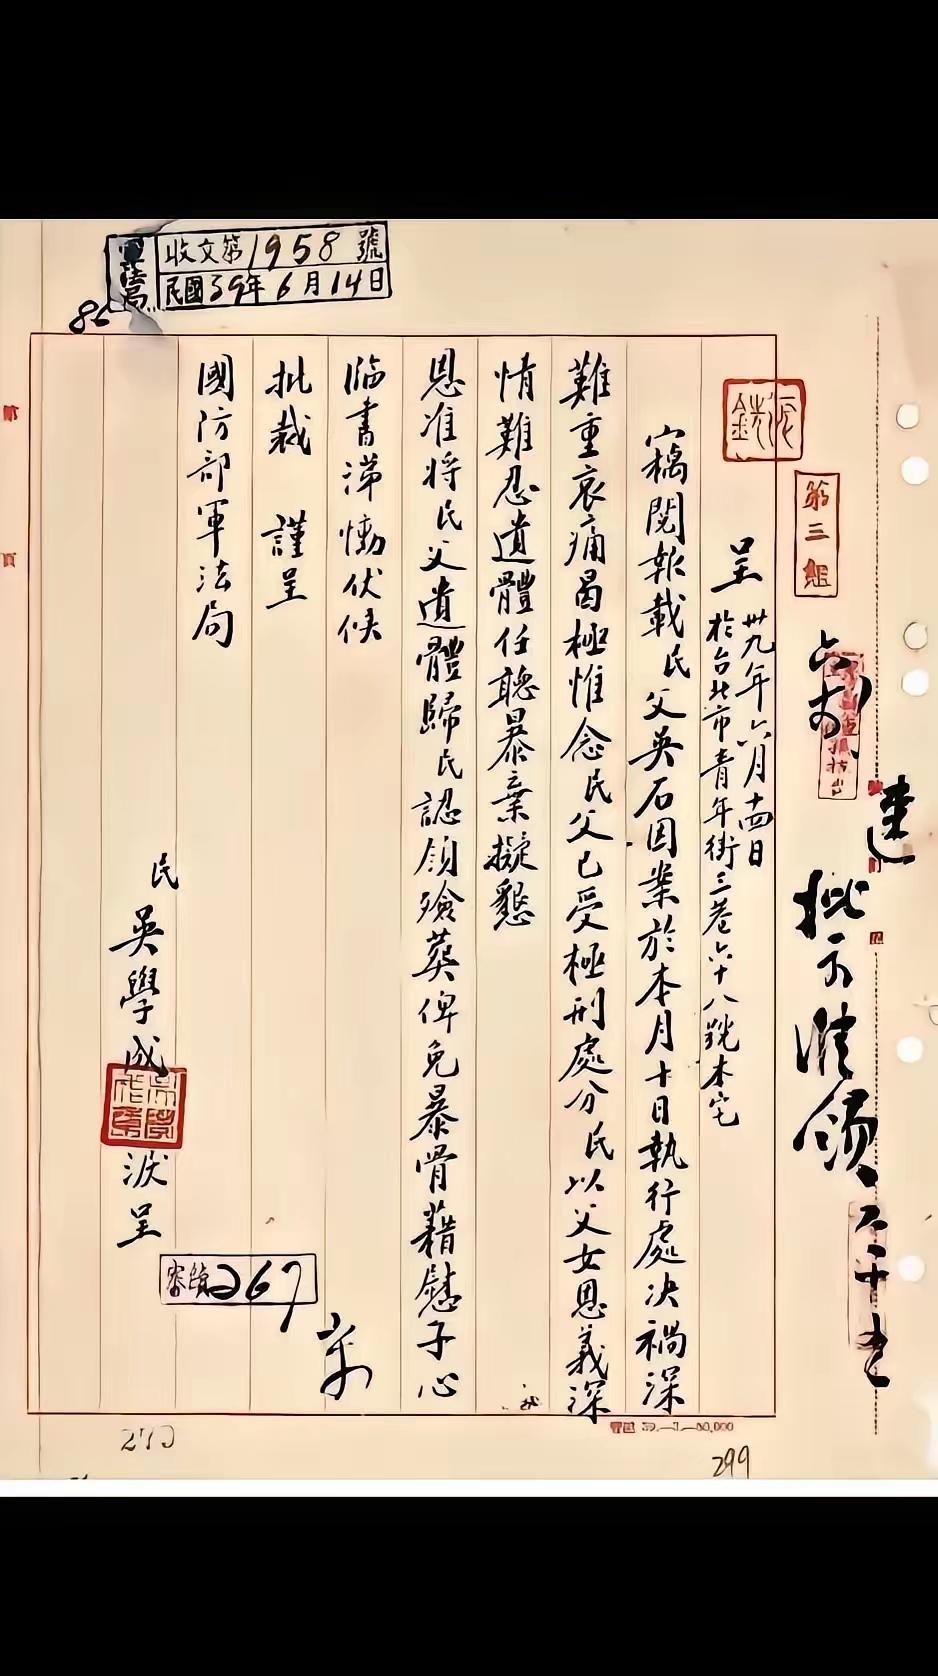 收文第1958號
民國39年6月14日
第三組
呈
卅九年六月十四日
於台北市青年街三巷六十八號本宅
竊閱報載民父吳石因案於本月十日執行處决禍深
難重哀痛曷極惟念民父已受極刑處分民以父女恩義深
情難忍遺體任聽暴棄擬懇
恩准將民父遺體歸民認領殮葬俾免暴骨藉慰子心
臨書涕慟伏候
批裁 謹呈
國防部軍法局
民
吳學成
淚呈
267
批示准領
299